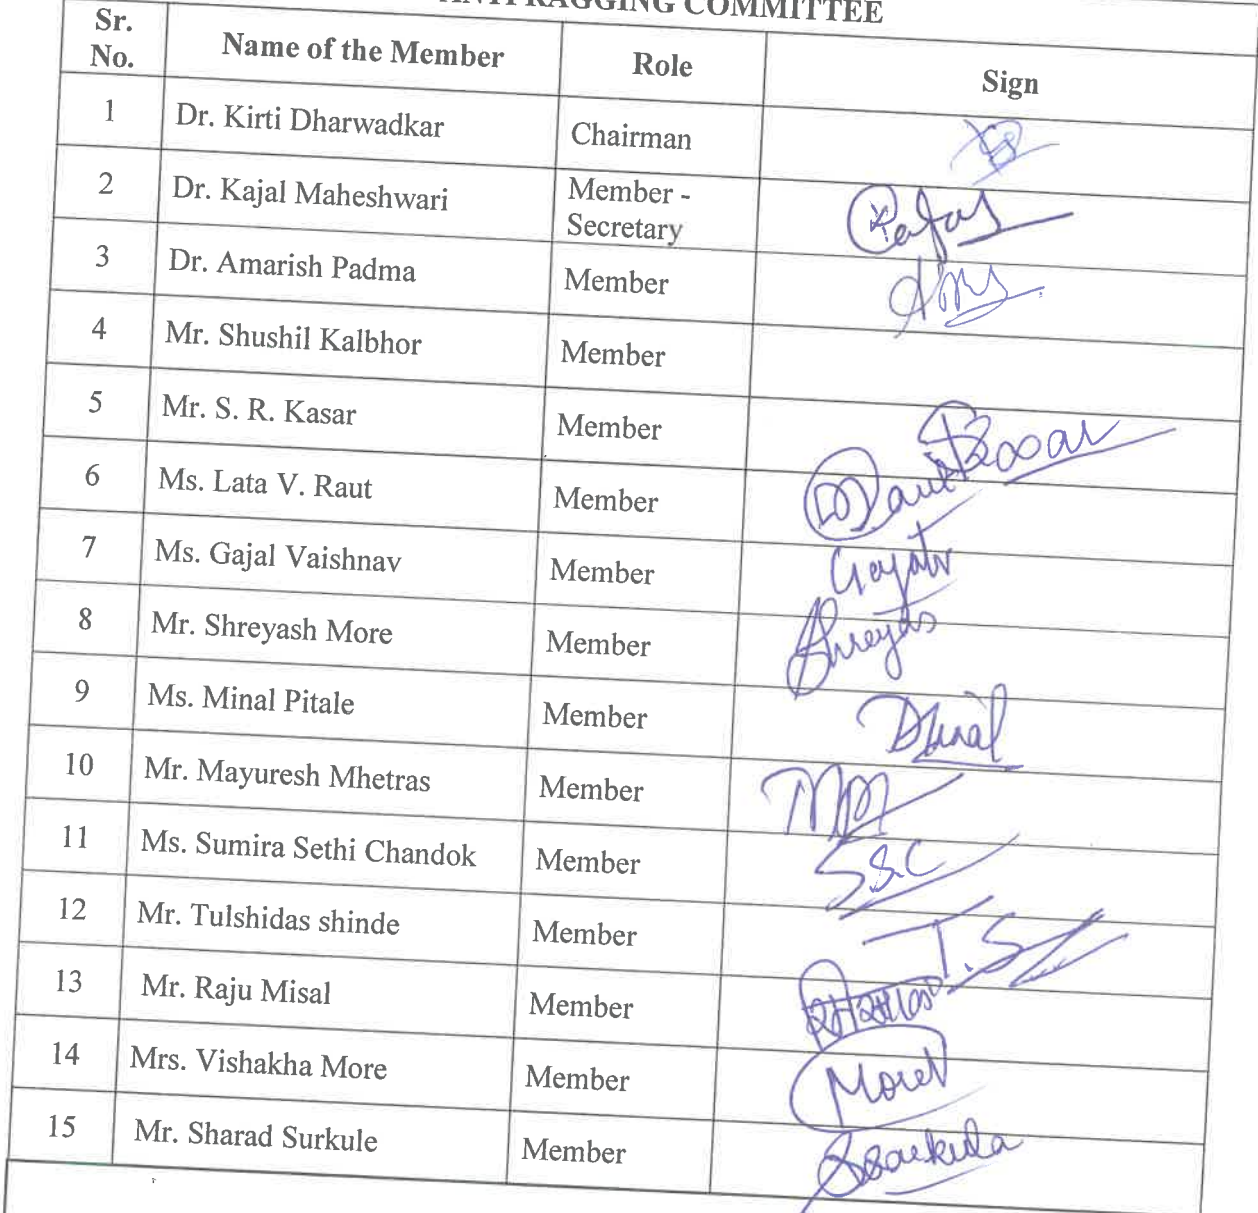 ANTI RAGGING COMMITTEE
Sr. No. Name of the Member Role Sign
1 Dr. Kirti Dharwadkar Chairman
2 Dr. Kajal Maheshwari Member - Secretary
3 Dr. Amarish Padma Member
4 Mr. Shushil Kalbhor Member
5 Mr. S. R. Kasar Member
6 Ms. Lata V. Raut Member
7 Ms. Gajal Vaishnav Member
8 Mr. Shreyash More Member Shreyas
9 Ms. Minal Pitale Member
10 Mr. Mayuresh Mhetras Member
11 Ms. Sumira Sethi Chandok Member S.S.C
12 Mr. Tulshidas shinde Member T.S
13 Mr. Raju Misal Member
14 Mrs. Vishakha More Member
15 Mr. Sharad Surkule Member